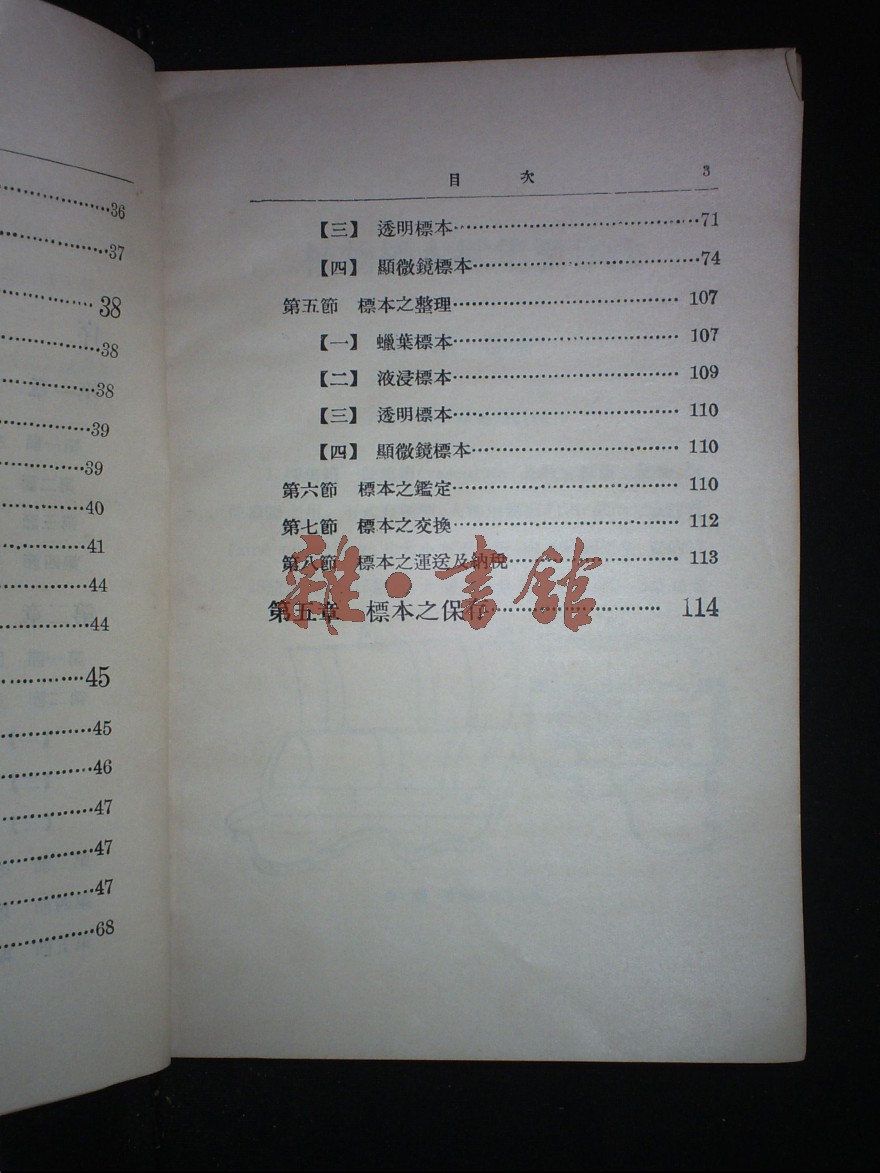 36
37
38
38
38
39
39
40
41
44
44
45
45
46
47
47
47
68
目 次 3
【三】 透明標本 71
【四】 顯微鏡標本 74
第五節 標本之整理 107
【一】 蠟葉標本 107
【二】 液浸標本 109
【三】 透明標本 110
【四】 顯微鏡標本 110
第六節 標本之鑑定 110
第七節 標本之交換 112
第八節 標本之運送及納稅 113
第五章 標本之保存 114
雜·書館